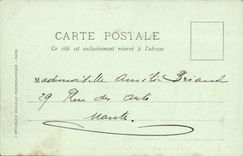 CARTE POSTALE
Ce côté est exclusivement réservé à l'adresse
Mademoiselle Briand
29 Rue des Arts
Nantes